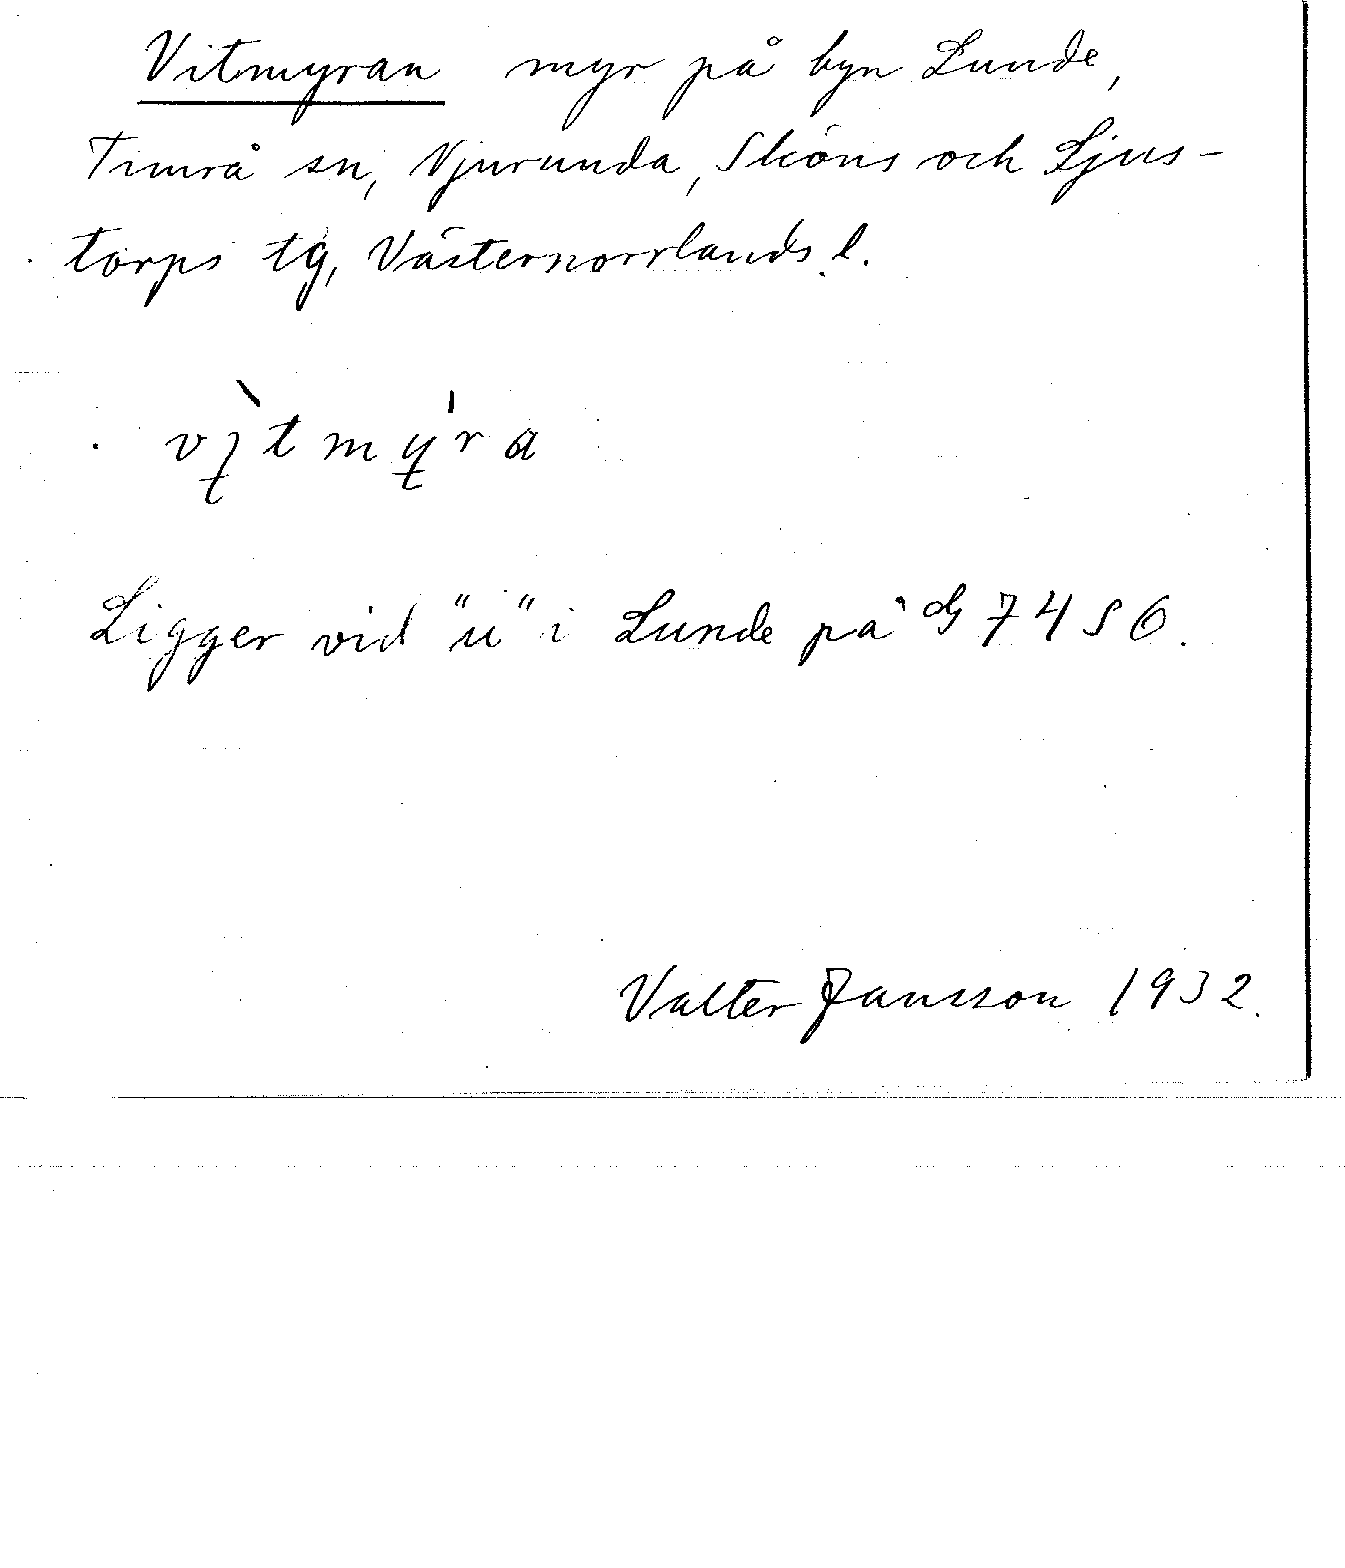 Vitmyran myr på byn Lunde,
Timrå sn, Njurunda, Sköns och Ljus-
torps tg, Västernorrlands l.
Ligger vid "u" i Lunde på G 74 S6.
Valter Jansson 1932.